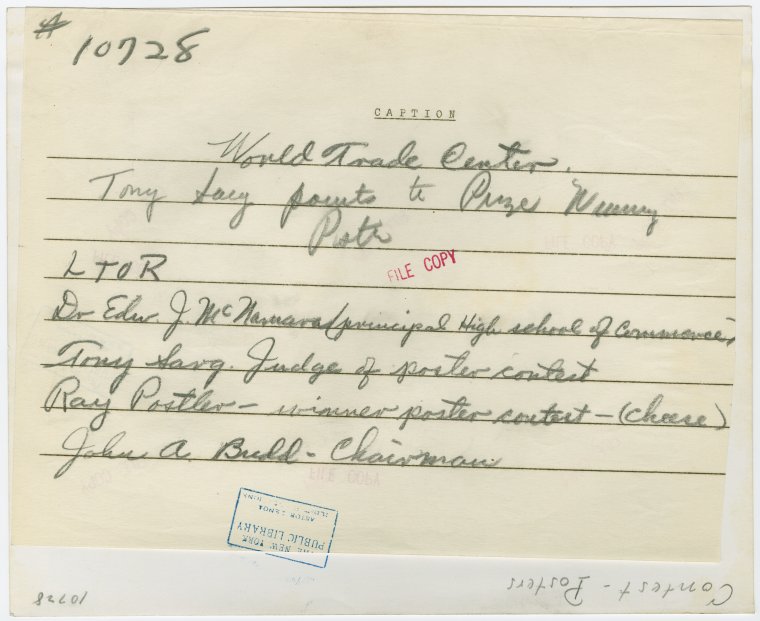 # 10728
CAPTION
World Trade Center.
Tony Sarg points to Prize Winning
Poster
FILE COPY
L TO R
Dr Edw J. McNamara (principal High school of Commerce)
Tony Sarg. Judge of poster contest
Ray Postler - winner poster contest - (cheese)
John A. Budd - Chairman
FILE COPY
THE NEW YORK
PUBLIC LIBRARY
ASTOR LENOX
Contest - Posters
10728